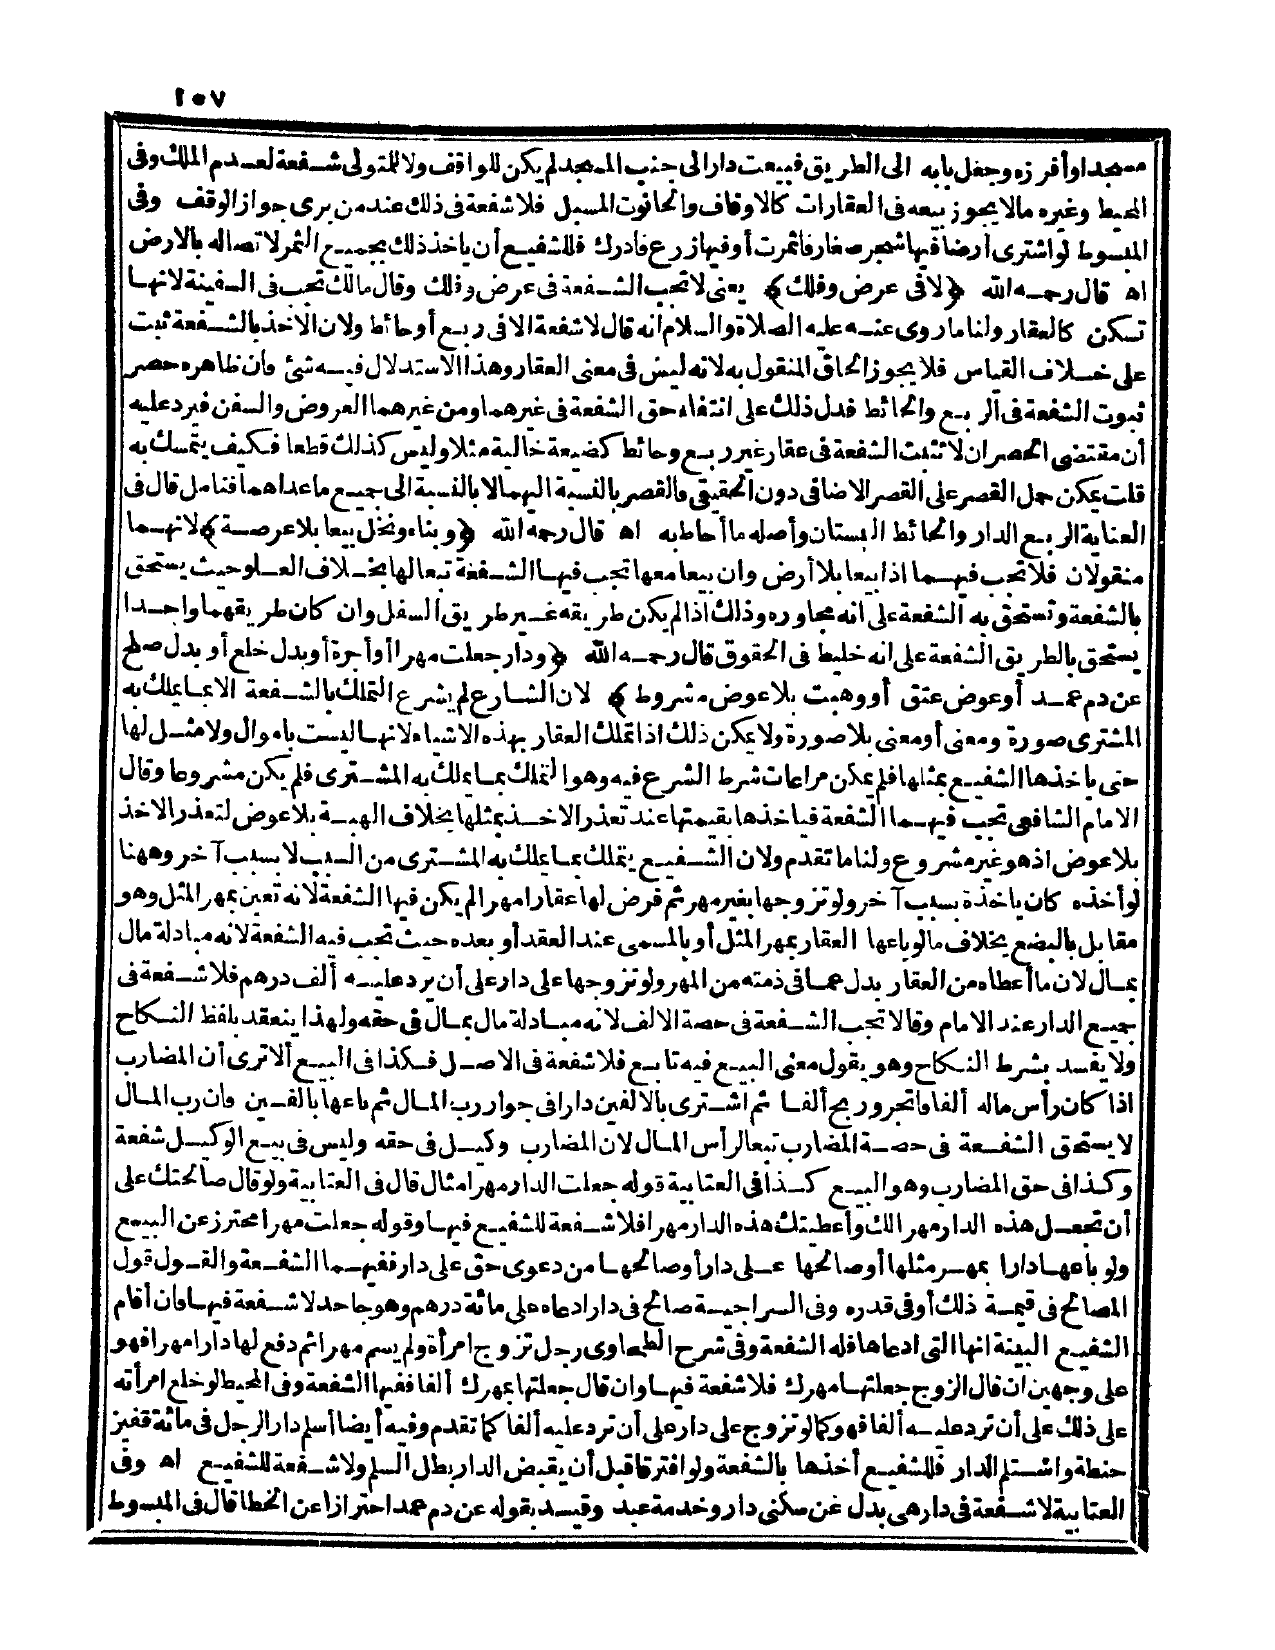 ١٥٧
مسجدا أو أفرزه وجعل بابه الى الطريق فبيعت دار الى جنب المسجد لم يكن للواقف ولا للمتولى شفعة لعدم الملك وفى
المحيط وغيره مالا يجوز بيعه فى العقارات كالاوقاف والحانوت المسبل فلا شفعة فى ذلك عند من يرى جواز الوقف وفى
المبسوط لو اشترى أرضا فيها شجر صغار فأثمرت أو فيها زرع فادرك فللشفيع أن ياخذ ذلك بجميع الثمر لاتصاله بالارض
اه قال رحمه الله ﴿لا فى عرض وفلك﴾ يعنى لا تجب الشفعة فى عرض وفلك وقال مالك تجب فى السفينة لانها
تسكن كالعقار ولنا ما روى عنه عليه الصلاة والسلام انه قال لا شفعة الا فى ربع أو حائط ولان الاخذ بالشفعة ثبت
على خلاف القياس فلا يجوز الحاق المنقول به لانه ليس فى معنى العقار وهذا الاستدلال فيه شئ فان ظاهره حصر
ثبوت الشفعة فى الربع والحائط فدل ذلك على انتفاء حق الشفعة فى غيرهما ومن غيرهما العروض والسفن فيرد عليه
أن مقتضى الحصر ان لا تثبت الشفعة فى عقار غير ربع وحائط كضيعة خالية مثلا وليس كذلك قطعا فكيف يتمسك به
قلت يمكن حمل القصر على القصر الاضافى دون الحقيقى فالقصر بالنسبة اليهما لا بالنسبة الى جميع ما عداهما فتامل قال فى
العناية الربع الدار والحائط البستان وأصله ما أحاط به اه قال رحمه الله ﴿وبناء ونخل بيعا بلا عرصة﴾ لانهما
منقولان فلا تجب فيهما اذا بيعا بلا أرض وان بيعا معها تجب فيها الشفعة تبعا لها بخلاف العلو حيث يستحق
بالشفعة وتستحق به الشفعة على انه مجاوره وذلك اذا لم يكن طريقه غير طريق السفل وان كان طريقهما واحدا
يستحق بالطريق الشفعة على انه خليط فى الحقوق قال رحمه الله ﴿ودار جعلت مهرا أو أجرة أو بدل خلع أو بدل صلح
عن دم عمد أو عوض عتق أو وهبت بلا عوض مشروط﴾ لان الشارع لم يشرع التملك بالشفعة الا بما يملك به
المشترى صورة ومعنى أو معنى بلا صورة ولا يمكن ذلك اذا تملك العقار بهذه الاشياء لانها ليست باموال ولا مثل لها
حتى ياخذها الشفيع بمثلها فلم يمكن مراعات شرط الشرع فيه وهو التملك بما يملك به المشترى فلم يكن مشروعا وقال
الامام الشافعى تجب فيهما الشفعة فياخذها بقيمتها عند تعذر الاخذ بمثلها بخلاف الهبة بلا عوض لتعذر الاخذ
بلا عوض اذ هو غير مشروع ولنا ما تقدم ولان الشفيع يتملك بما يملك به المشترى من السبب لا بسبب آخر وههنا
لو أخذه كان ياخذه بسبب آخر ولو تزوجها بغير مهر ثم فرض لها عقارا مهرا لم يكن فيها الشفعة لانه تعين بمهر المثل وهو
مقابل بالبضع بخلاف مالو باعها العقار بمهر المثل أو بالمسمى عند العقد أو بعده حيث تجب فيه الشفعة لانه مبادلة مال
بمال لان ما أعطاه من العقار بدل عما فى ذمته من المهر ولو تزوجها على دار على أن ترد عليه ألف درهم فلا شفعة فى
جميع الدار عند الامام وقالا تجب الشفعة فى حصة الالف لانه مبادلة مال بمال فى حقه ولهذا ينعقد بلفظ النكاح
ولا يفسد بشرط النكاح وهو يقول معنى البيع فيه تابع فلا شفعة فى الاصل فكذا فى البيع ألا ترى أن المضارب
اذا كان رأس ماله ألفا فاتجر وربح ألفا ثم اشترى بالالفين دارا فى جوار رب المال ثم باعها بالفين فان رب المال
لا يستحق الشفعة فى حصة المضارب تبعا لرأس المال لان المضارب وكيل فى حقه وليس فى بيع الوكيل شفعة
وكذا فى حق المضارب وهو البيع كذا فى العتابية قوله جعلت الدار مهرا مثال قال فى العتابية ولو قال صالحتك على
أن تجعل هذه الدار مهرا لك وأعطيتك هذه الدار مهرا فلا شفعة للشفيع فيها وقوله جعلت مهرا محترز عن البيع
ولو باعها دارا بمهر مثلها أو صالحها على دار أو صالحها من دعوى حق على دار ففيهما الشفعة والقول قول
المصالح فى قيمة ذلك أو فى قدره وفى السراجية صالح فى دار ادعاه على مائة درهم وهو جاحد لا شفعة فيها وان أقام
الشفيع البينة انها التى ادعاها فله الشفعة وفى شرح الطحاوى رجل تزوج امرأة ولم يسم مهرا ثم دفع لها دارا مهرا فهو
على وجهين ان قال الزوج جعلتها مهرك فلا شفعة فيها وان قال جعلتها بمهرك ألفا ففيها الشفعة وفى المحيط لو خلع امرأته
على ذلك على أن ترد عليه ألفا فهو كما لو تزوج على دار على أن ترد عليه ألفا كما تقدم وفيه أيضا أسلم دار الرجل فى مائة قفيز
حنطة واستلم الدار فللشفيع أخذها بالشفعة ولو افترقا قبل أن يقبض الدار بطل السلم ولا شفعة للشفيع اه وفى
العتابية لا شفعة فى دار هى بدل عن سكنى دار وخدمة عبد وقيد بقوله عن دم عمد احترازا عن الخطا قال فى المبسوط